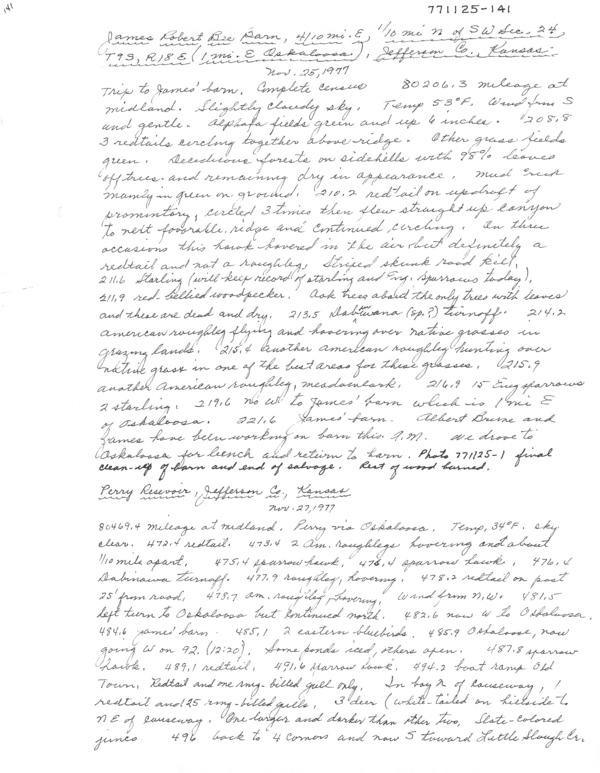 141
771125-141
James Robert Bee Barn, 4/10 mi. E, 1/10 mi N of SW Sec. 24,
T9S, R18E (1 mi. E Oskaloosa), Jefferson Co., Kansas.
Nov. 25, 1977
Trip to James' barn. Complete census 80206.3 mileage at
midland. Slightly cloudy sky. Temp 53°F. Wind from S
and gentle. Alphafa fields green and up 6 inches. 208.8
3 redtails circling together above ridge. Other grass fields
green. Deciduous forests on sidehills with 98% leaves
off trees and remaining dry in appearance. Mud Creek
mainly in green on ground. 210.2 redtail on updraft of
promintory, circled 3 times then flew straight up canyon
to next favorable ridge and continued circling. On three
occasions this hawk hovered in the air but definitely a
redtail and not a roughleg. Striped skunk road kill,
211.6 Starling (will keep record of starling and Eng. sparrows today),
211.9 red bellied woodpecker. Oak trees about the only trees with leaves
and these are dead and dry. 213.5 (sp.?) turnoff. 214.2
American roughleg flying and hovering over native grasses in
grazing lands. 215.4 another American roughleg hunting over
native grass in one of the best areas for these grasses. 215.9
another American roughleg, meadowlark. 216.9 15 Eng sparrows
2 starling. 219.6 now W to James' barn which is 1 mi E
of Oskaloosa. 221.6 James' barn. Albert Brune and
James have been working on barn this A.M. We drove to
Oskaloosa for lunch and return to barn. Photo 771125-1 final
clean-up of barn and end of salvage. Rest of wood burned.
Perry Resevoir, Jefferson Co., Kansas
Nov. 27, 1977
80469.4 mileage at midland. Perry via Oskaloosa. Temp, 34°F. sky
clear. 472.4 redtail. 473.4 2 Am. roughlegs hovering and about
1/10 mile apart. 475.4 sparrow hawk, 476.4 sparrow hawk, 476.4
Dabinawa turnoff. 477.9 roughleg, hovering. 478.2 redtail on post
25' from road, 478.7 am. roughleg, hovering, Wind from N.W. 481.5
left turn to Oskaloosa but continued north. 482.6 now W to Oskaloosa.
484.6 James' barn. 485.1 2 eastern bluebirds. 485.9 Oskaloose, now
going W on 92. (12:20). Some ponds iced, others open. 487.8 sparrow
hawk. 489.1 redtail. 491.6 sparrow hawk. 494.2 boat ramp Old
Town, Redtail and one ring-billed gull only. In bay N of causeway, 1
redtail and 125 ring-billed gulls, 3 deer (white-tailed on hillside to
N E of causeway. One larger and darker than other two, Slate-colored
junco 496 back to 4 Corners and now S toward Little Slough Cr.